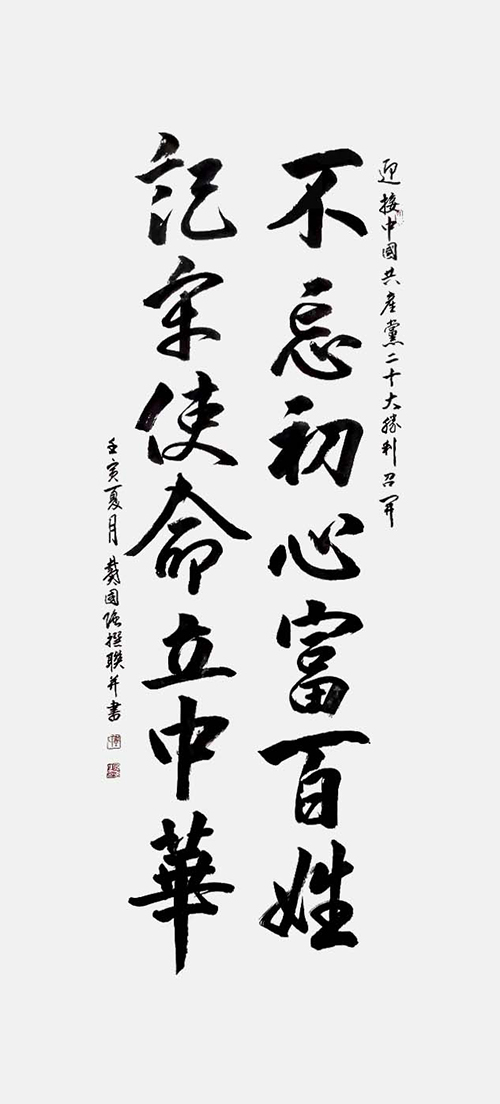 迎接中國共產黨二十大勝利召開
不忘初心富百姓
記牢使命立中華
壬寅夏月 戴國强撰聯并書